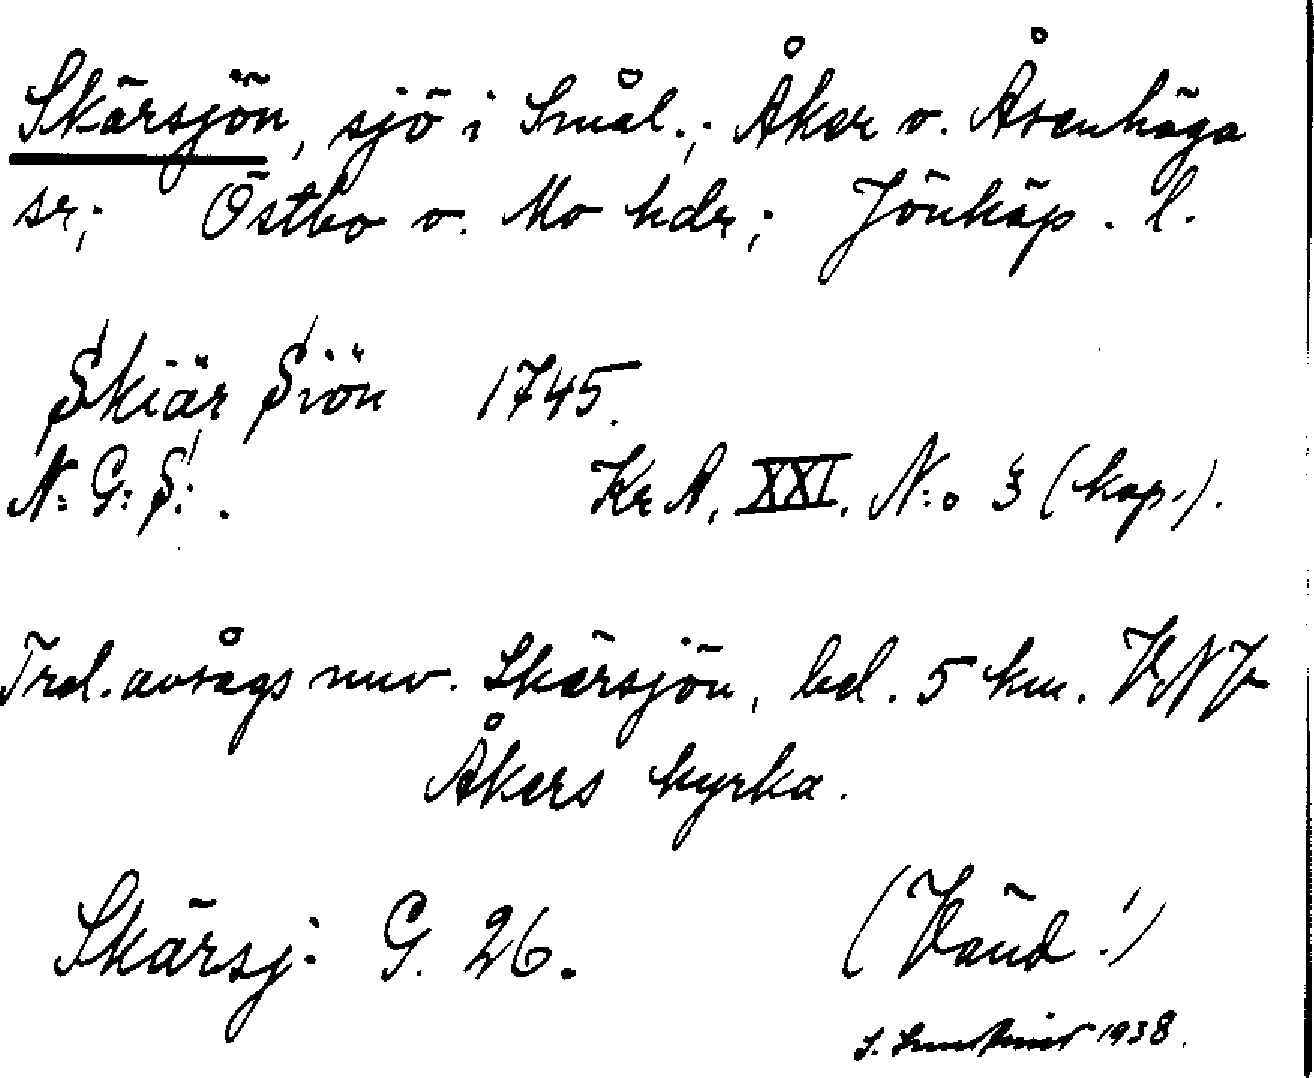 Skärsjön, sjö i Smål.; Åker o. Åsenhöga
sr; Östbo o. Mo hdr; Jönköp. l.
Skiär Siön 1745.
N: G: S: .
Kr A. XXI. N:o 3 (kop.).
Trol. avsågs nuv. Skärsjön, bel. 5 km. VNV
Åkers kyrka.
Skärsj. G. 26.
(Vänd!)
1938.